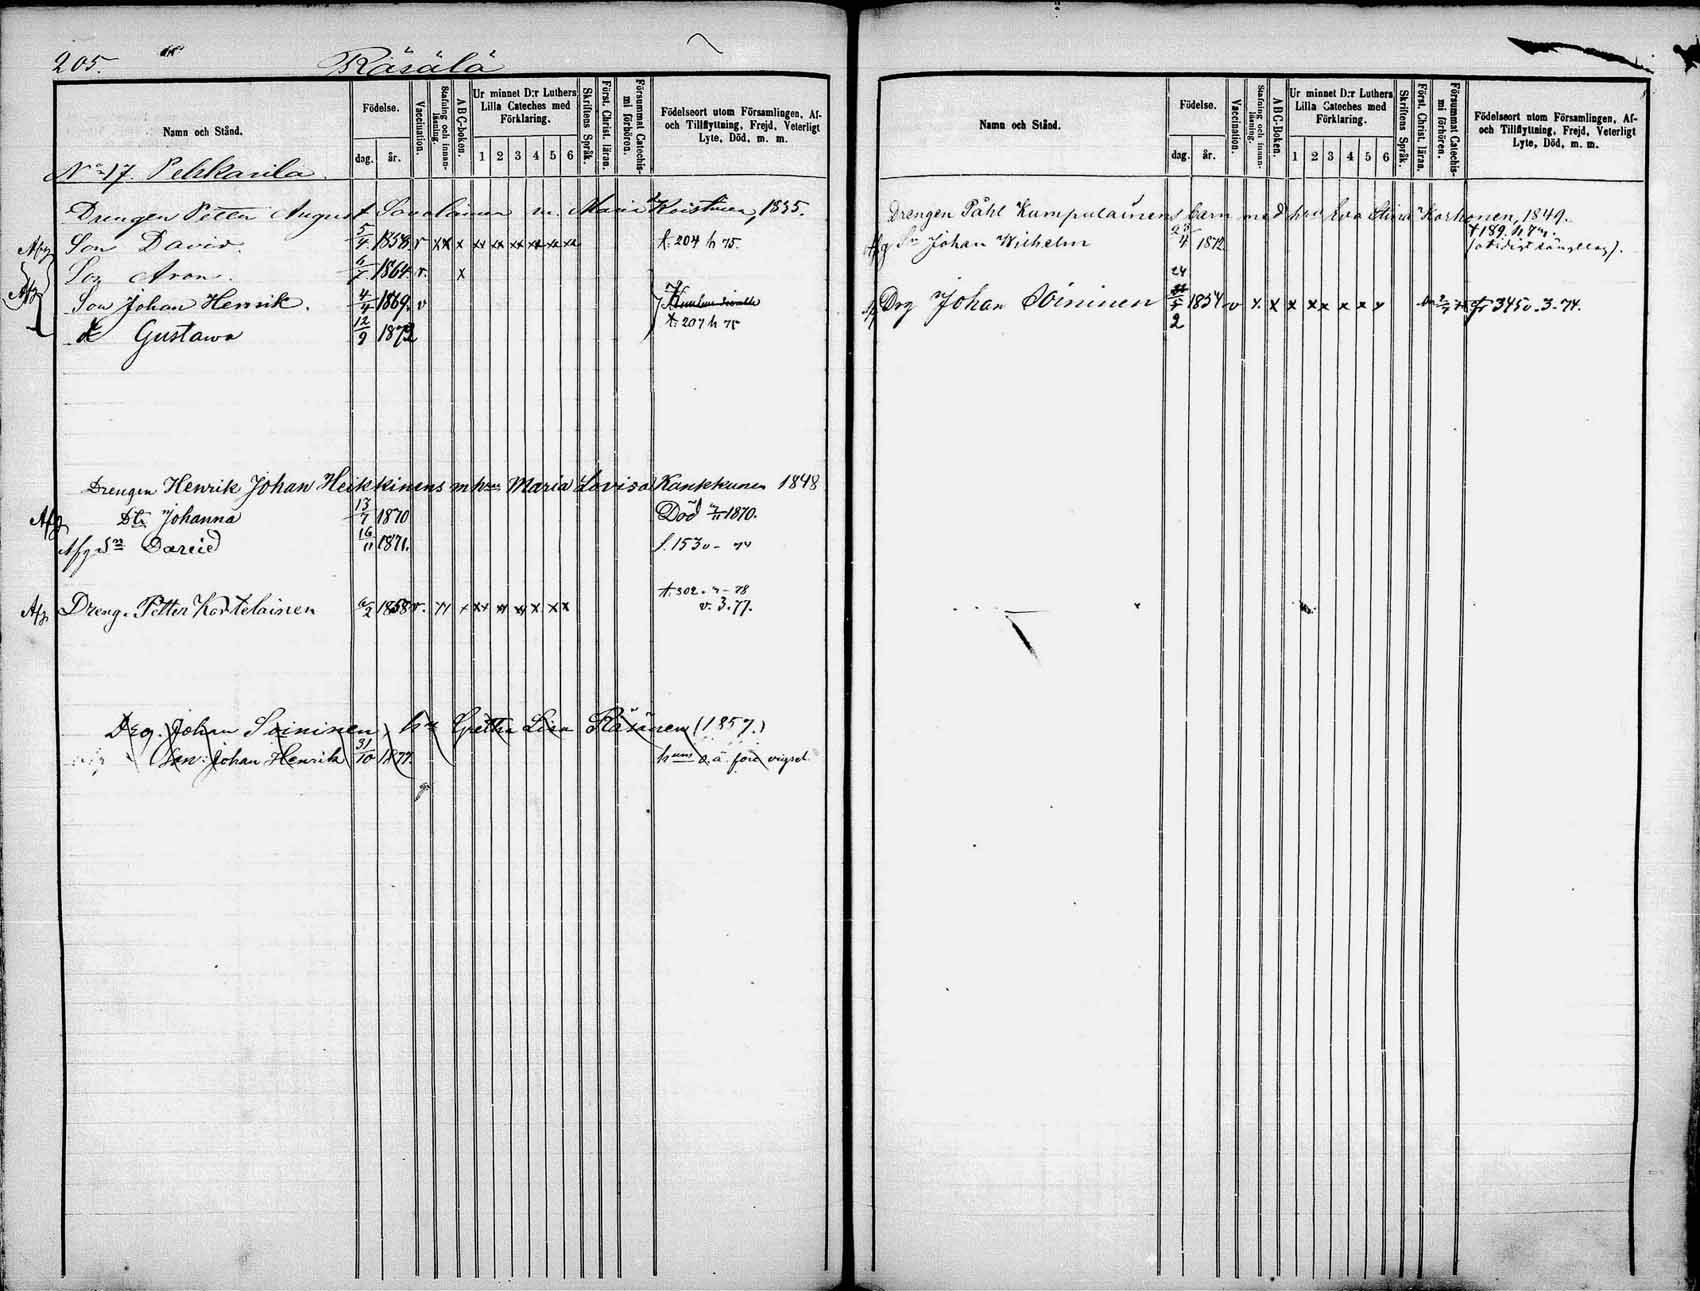 205.
Räsälä
Namn och Stånd.
Födelse.
dag.
år.
Vaccination.
Stafning och innan-läsning.
ABC-boken.
Ur minnet D:r Luthers Lilla Cateches med Förklaring.
1 2 3 4 5 6
Skriftens Språk.
Först. Christ. läran.
Försummat Catechis-mi förhören.
Födelseort utom Församlingen, Af- och Tillflyttning, Frejd, Veterligt Lyte, Död, m. m.
No 17. Pekkarila
Drengen Petter August Savolainen m. Maria Kristina, 1835.
Afg Son David 5/4 1858. v xx x xx xx xx xx xx xx t. 204 h 75.
Son Aron. 1864. v. x
Afg Son Johan Henrik. 4/4 1869. v
Gustava 12/9 1872 t. 207 h 75
Drengen Henrik Johan Heikkinens m hus Maria Lovisa Kankkunen 1848
Afg Dtr Johanna 13/7 1870 Död 1870.
Afg Sn David 16/11 1871. f. 153 v - 74
Afg Dreng. Petter Kortelainen 6/2 1858 v. t. 302. - 78
v. 3. 77.
Drg. Johan Soininen, hu Gretha Lisa Räsänen (1857.)
Son: Johan Henrik 31/10 1877. hans o. ä. före vigsel
Namn och Stånd.
Födelse.
dag.
år.
Vaccination.
Stafning och innan-läsning.
ABC-Boken.
Ur minnet D:r Luthers Lilla Cateches med Förklaring.
1 2 3 4 5 6
Skriftens Språk.
Först. Christ. läran.
Försummat Catechis-mi förhören.
Födelseort utom Församlingen, Af- och Tillflyttning, Frejd, Veterligt Lyte, Död, m. m.
Drengen Påhl Kumpulainens barn med hru Eva Stina Korhonen, 1849.
Afg Sn Johan Wilhelm 1872 t 189. h 74.
Drg Johan Soininen 24 1854 v x x x xx x x fr 345 v. 3. 74.
2